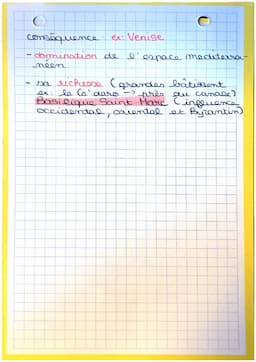 conséquence : ex: Venise
- domination de l'espace mediterra-
néen
- sa richesse (grandes bâtiment
ex: la Ca' doro -> près du canale)
Basilique Saint Marc (influence
occidental, oriental et Byzantin)